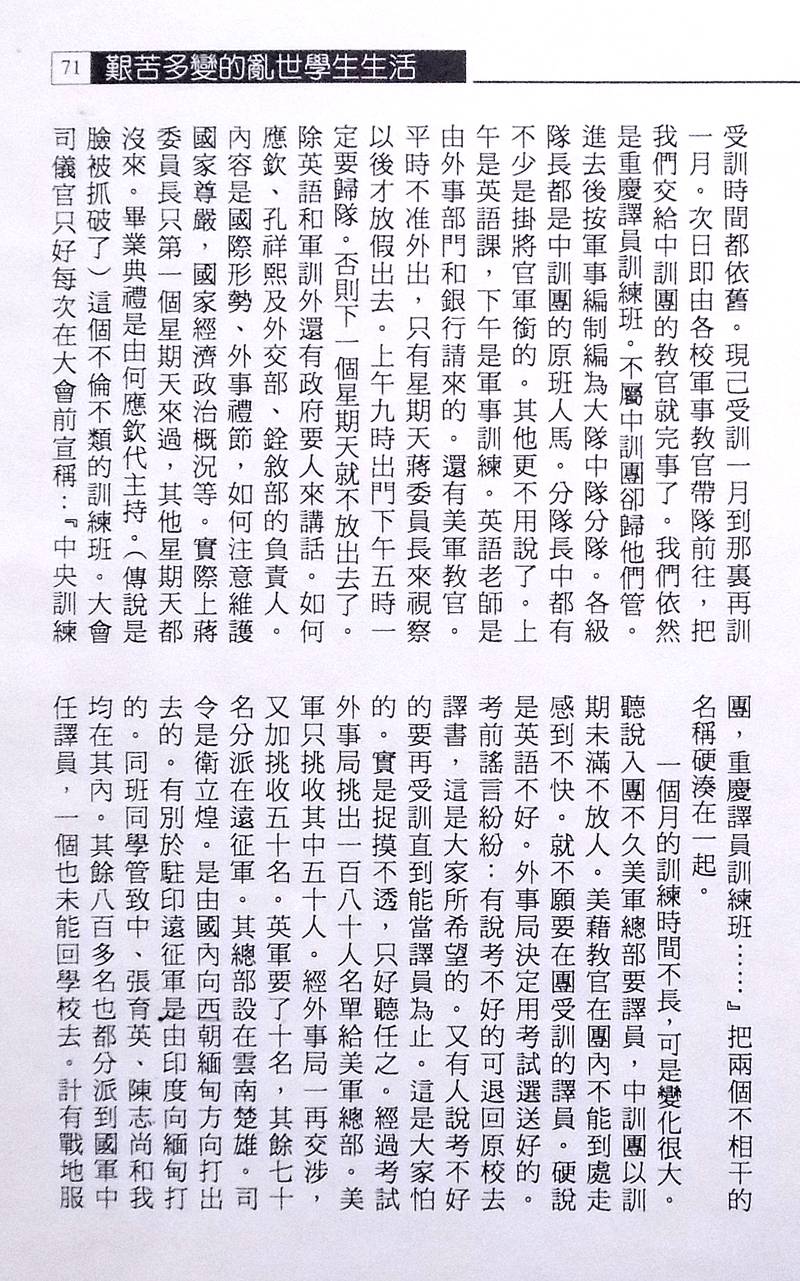 71
艱苦多變的亂世學生生活
受訓時間都依舊。現己受訓一月到那裏再訓
一月。次日即由各校軍事教官帶隊前往，把
我們交給中訓團的教官就完事了。我們依然
是重慶譯員訓練班。不屬中訓團卻歸他們管。
進去後按軍事編制編為大隊中隊分隊。各級
隊長都是中訓團的原班人馬。分隊長中都有
不少是掛將官軍銜的。其他更不用說了。上
午是英語課，下午是軍事訓練。英語老師是
由外事部門和銀行請來的。還有美軍教官。
平時不准外出，只有星期天蔣委員長來視察
以後才放假出去。上午九時出門下午五時一
定要歸隊。否則下一個星期天就不放出去了。
除英語和軍訓外還有政府要人來講話。如何
應欽、孔祥熙及外交部、銓敘部的負責人。
內容是國際形勢、外事禮節，如何注意維護
國家尊嚴，國家經濟政治概況等。實際上蔣
委員長只第一個星期天來過，其他星期天都
沒來。畢業典禮是由何應欽代主持。（傳說是
臉被抓破了）這個不倫不類的訓練班。大會
司儀官只好每次在大會前宣稱：『中央訓練
團，重慶譯員訓練班……』把兩個不相干的
名稱硬湊在一起。
一個月的訓練時間不長，可是變化很大。
聽說入團不久美軍總部要譯員，中訓團以訓
期未滿不放人。美藉教官在團內不能到處走
感到不快。就不願要在團受訓的譯員。硬說
是英語不好。外事局決定用考試選送好的。
考前謠言紛紛：有說考不好的可退回原校去
譯書，這是大家所希望的。又有人說考不好
的要再受訓直到能當譯員為止。這是大家怕
的。實是捉摸不透，只好聽任之。經過考試
外事局挑出一百八十人名單給美軍總部。美
軍只挑收其中五十人。經外事局一再交涉，
又加挑收五十名。英軍要了十名，其餘七十
名分派在遠征軍。其總部設在雲南楚雄。司
令是衛立煌。是由國內向西朝緬甸方向打出
去的。有別於駐印遠征軍是由印度向緬甸打
的。同班同學管致中、張育英、陳志尚和我
均在其內。其餘八百多名也都分派到國軍中
任譯員，一個也未能回學校去。計有戰地服